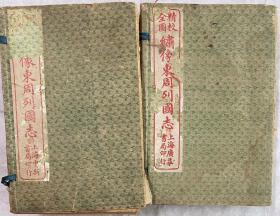 精校
全圖
繡像東周列國志
上海廣益
書局印行
像東周列國志
上海
書局印行